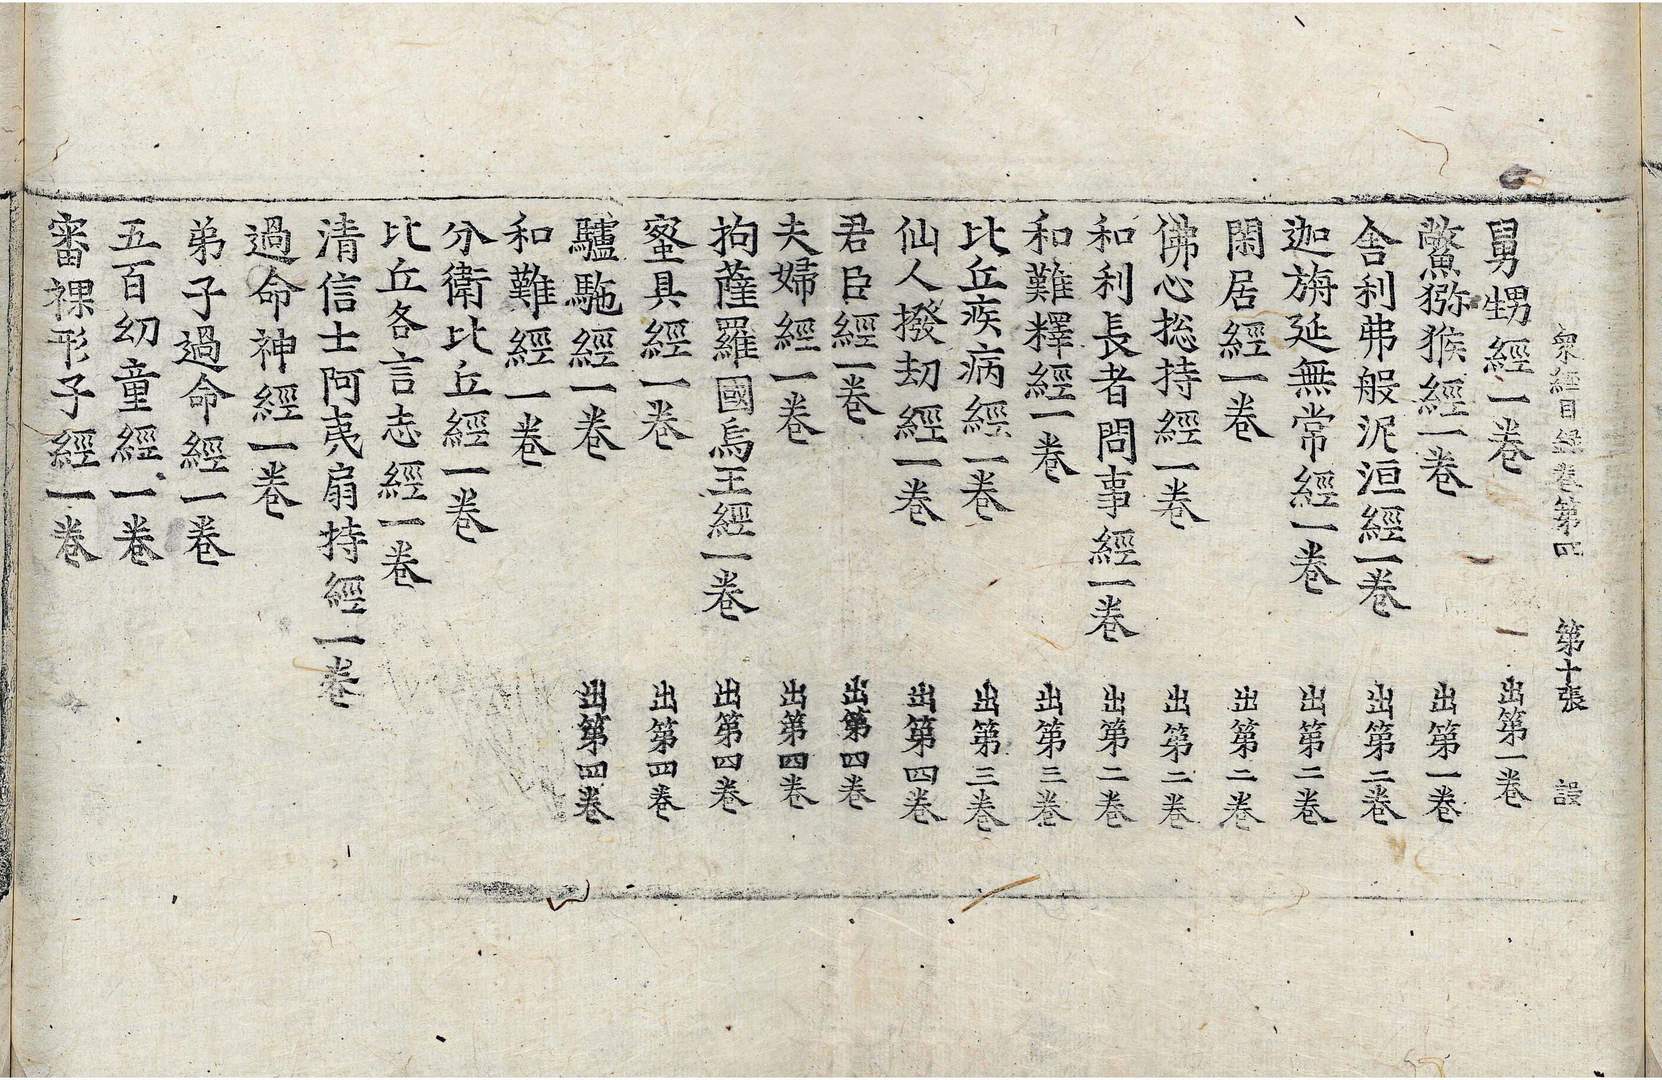 衆經目録卷第四 第十張 設
舅甥經一卷 出第一卷
鼈獼猴經一卷 出第一卷
舍利弗般泥洹經一卷 出第二卷
迦旃延無常經一卷 出第二卷
閑居經一卷 出第二卷
佛心捴持經一卷 出第二卷
和利長者問事經一卷 出第二卷
和難釋經一卷 出第三卷
比丘疾病經一卷 出第三卷
仙人撥劫經一卷 出第四卷
君臣經一卷 出第四卷
夫婦經一卷 出第四卷
拘薩羅國烏王經一卷 出第四卷
蜜具經一卷 出第四卷
驢駞經一卷 出第四卷
和難經一卷
分衛比丘經一卷
比丘各言志經一卷
清信士阿夷扇持經一卷
過命神經一卷
弟子過命經一卷
五百幼童經一卷
審裸形子經一卷